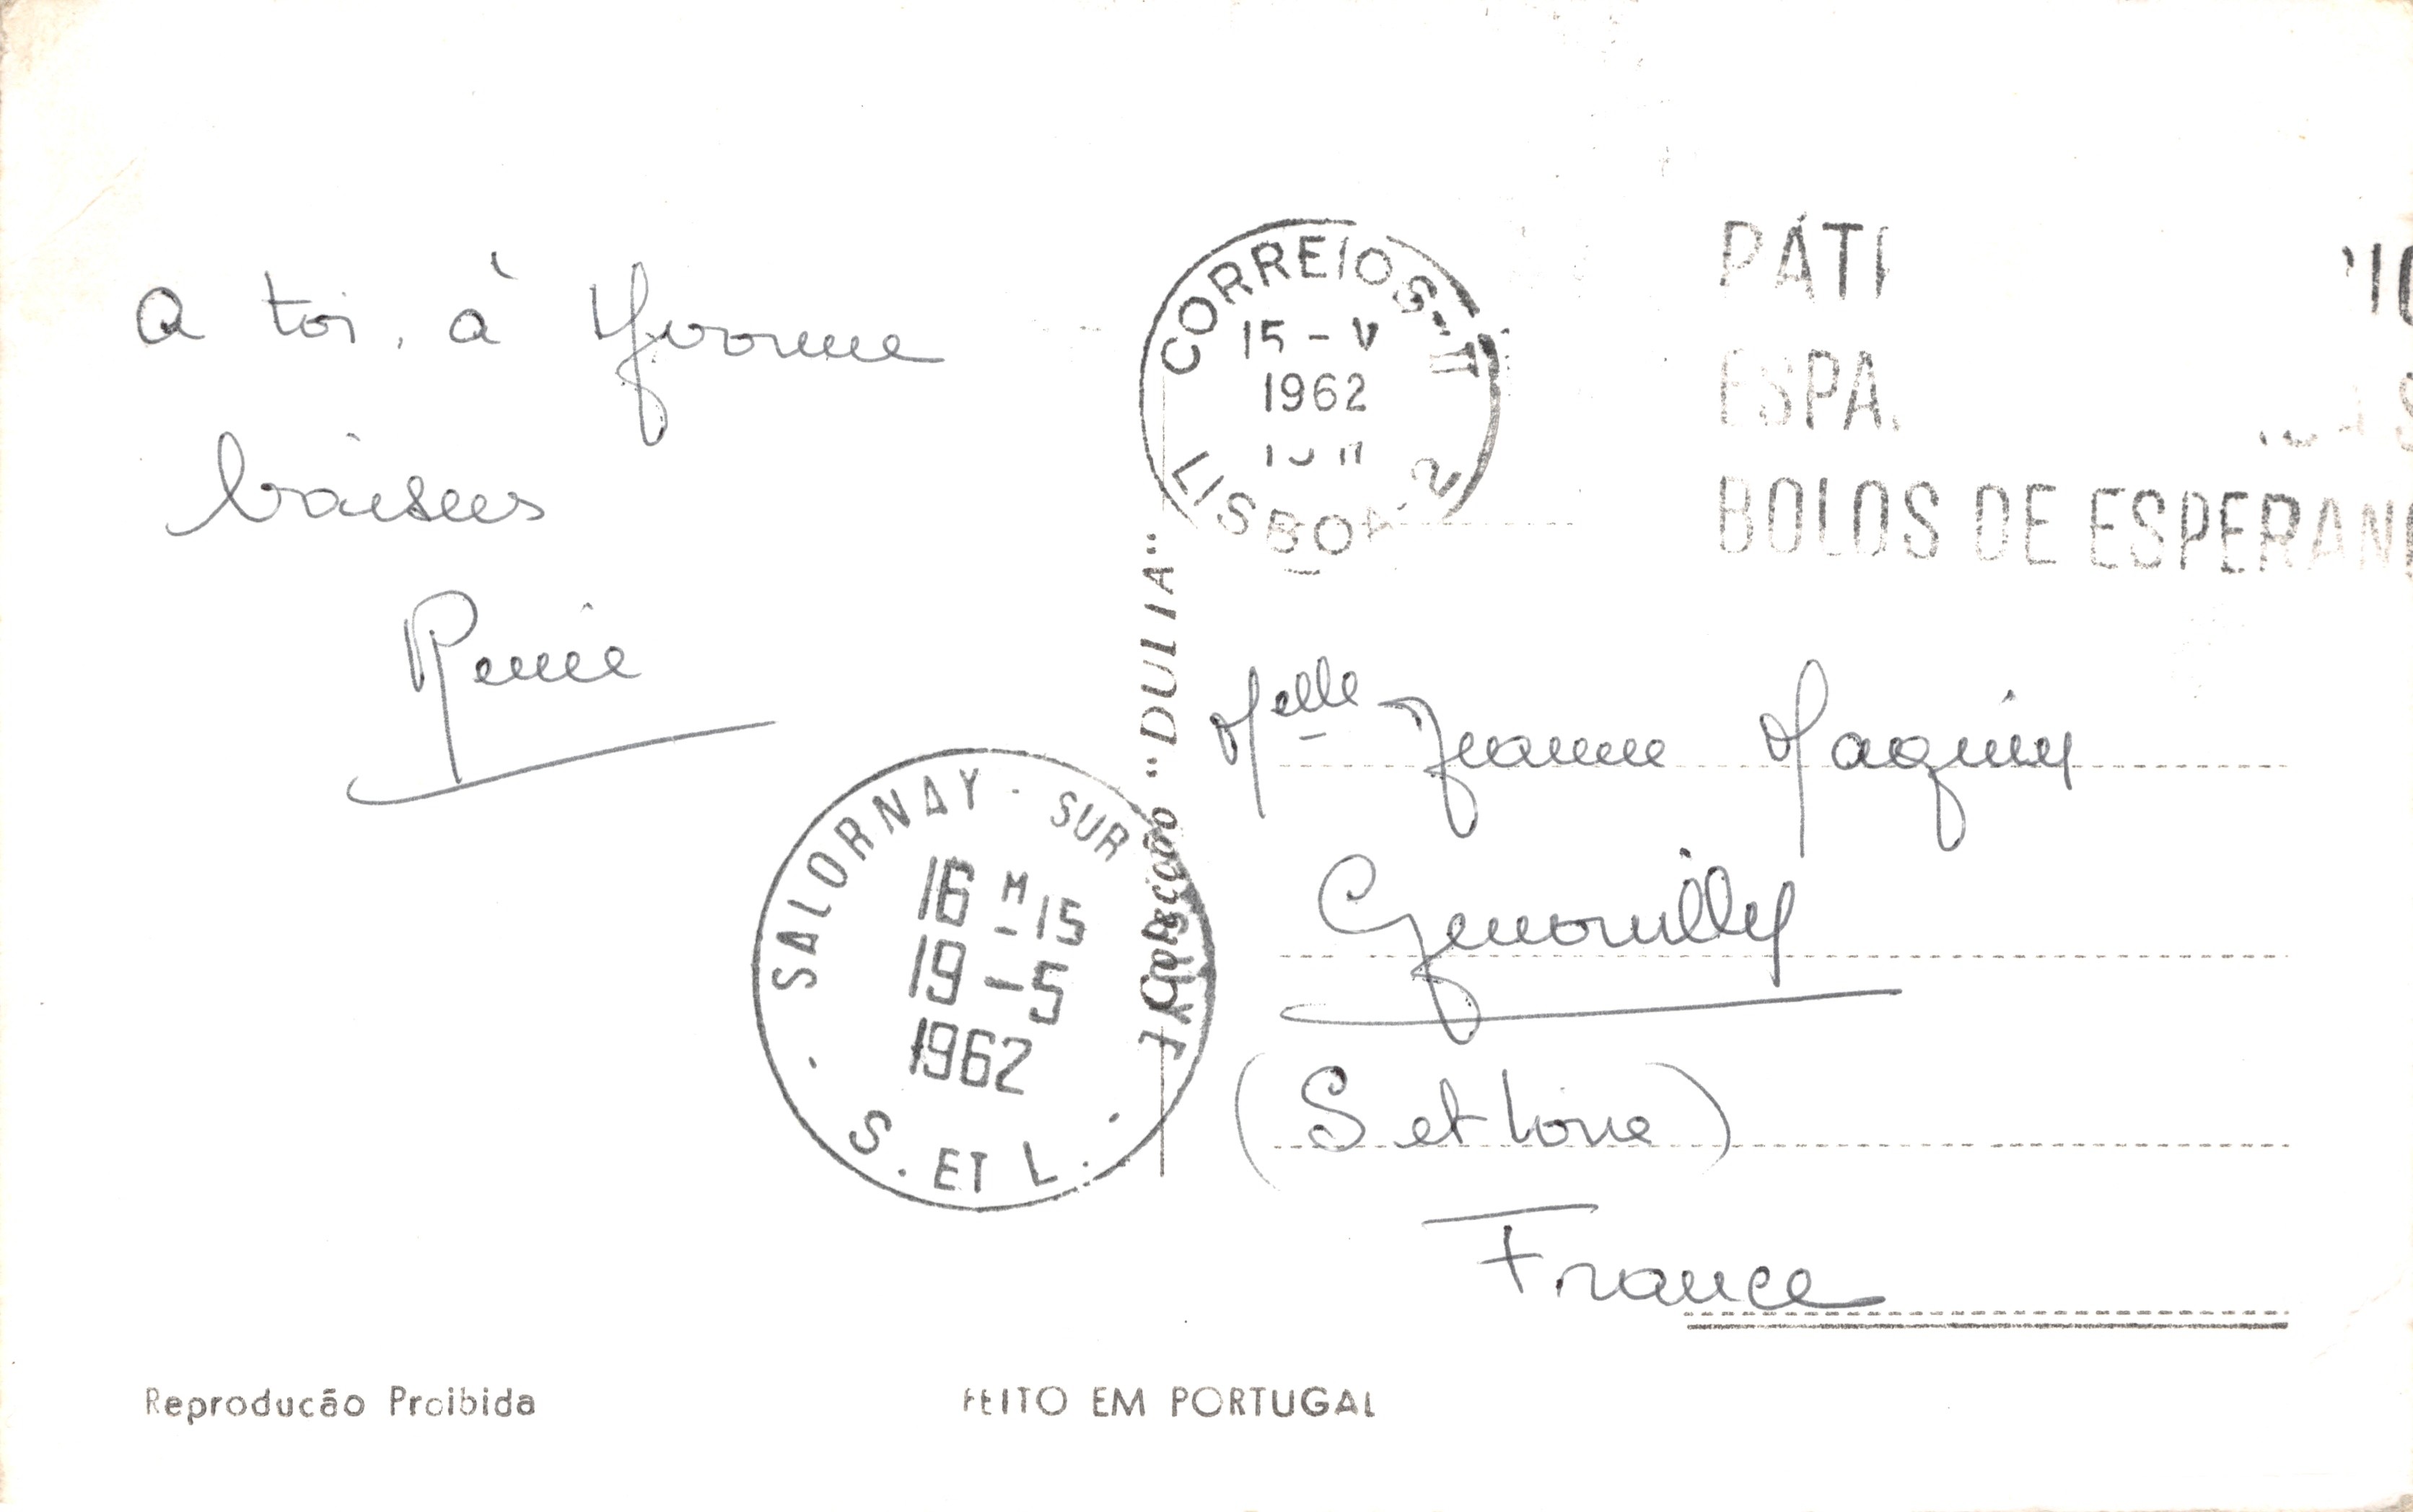 A toi, à Yvonne
baisers
Renée
CORREIOS
15 - V
1962
LISBOA 2
PÁTI
ESPA
BOLOS DE ESPERAN
Colecção "DULIA"
Melle Jeanne Maguin
Genouilly
(S et Loire)
France
SALORNAY - SUR
16 H 15
19 - 5
1962
S. ET L.
Reproducão Proibida
FEITO EM PORTUGAL